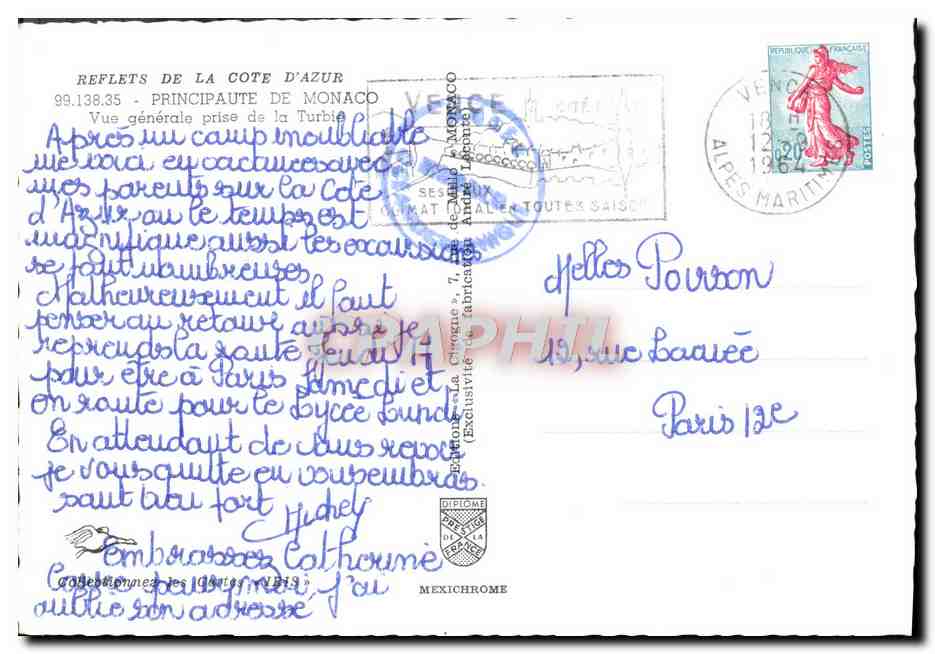 REFLETS DE LA COTE D'AZUR
99.138.35 - PRINCIPAUTE DE MONACO
Vue générale prise de la Turbie
Après un camp inoubliable
me voici en vacances avec
mes parents sur la Côte
d'Azur où le temps est
magnifique aussi les excursions
se font nombreuses
Malheureusement il faut
penser au retour aussi je
reprends la route Jeudi
pour être à Paris Samedi et
en route pour le Lycée Lundi
En attendant de vous revoir
je vous quitte en vous embras
sant bien fort
Embrassez Catherine
pour moi, j'ai
oublié son adresse
Collectionnez les Cartes «IRIS»
Editions «La Cigogne», 7, rue de Millo - MONACO
(Exclusivité de fabrication André Leconte)
DIPLOME
PRESTIGE
DE LA
FRANCE
MEXICHROME
VENCE
SES
CLIMAT IDEAL EN TOUTES SAISONS
VENCE
18 H
12-9
1964
ALPES MARITIMES
REPUBLIQUE FRANÇAISE
0,20
POSTES
Melles Poirson
12, rue Lacuée
Paris 12e
CPAPHIL